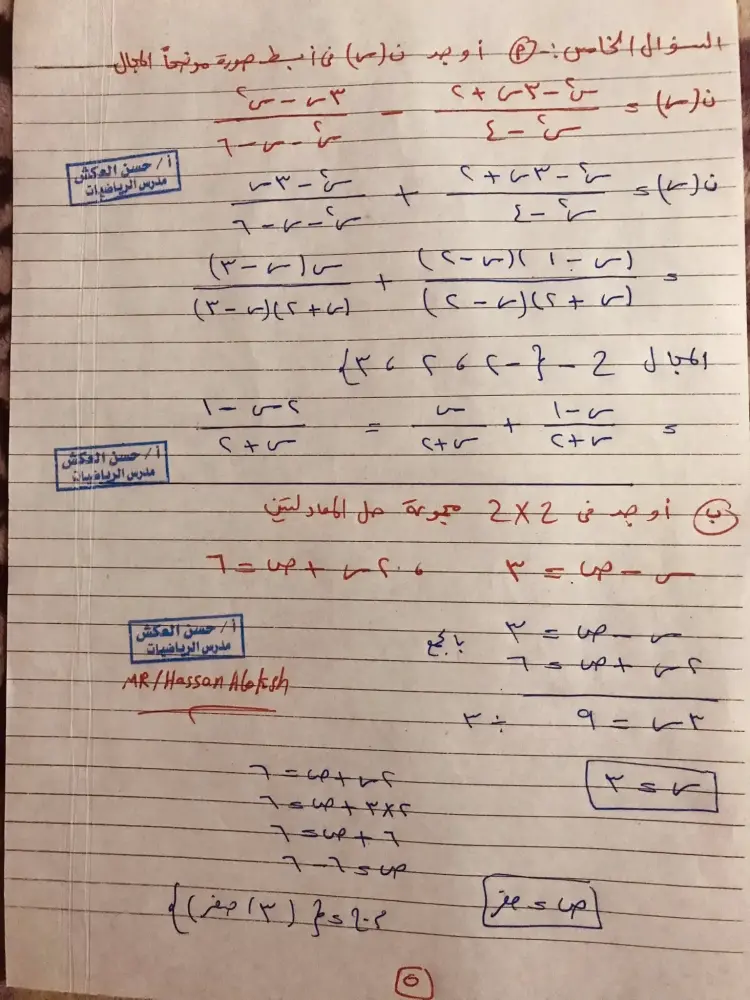 السؤال الخامس:- (أ) أوجد ن(س) فى أبسط صورة موضحاً المجال
ن(س) = (س² - ٣س + ٢)/(س² - ٤) - (٣س - س²)/(س² - س - ٦)
أ/ حسن العكش
مدرس الرياضيات
ن(س) = (س² - ٣س + ٢)/(س² - ٤) + (س² - ٣س)/(س² - س - ٦)
= (س - ١)(س - ٢)/(س + ٢)(س - ٢) + س(س - ٣)/(س + ٢)(س - ٣)
المجال ح - {-٢ ، ٢ ، ٣}
= (س - ١)/(س + ٢) + س/(س + ٢) = (٢س - ١)/(س + ٢)
أ/ حسن العكش
مدرس الرياضيات
(ب) أوجد فى ح × ح مجموعة حل المعادلتين
س - ص = ٣ ، ٢س + ص = ٦
أ/ حسن العكش
مدرس الرياضيات
MR/Hassan Alaksh
س - ص = ٣
بالجمع
٢س + ص = ٦
٣س = ٩ ÷ ٣
س = ٣
٢س + ص = ٦
٢×٣ + ص = ٦
٦ + ص = ٦
ص = ٦ - ٦
ص = صفر
م.ح = {(٣، صفر)}
٥